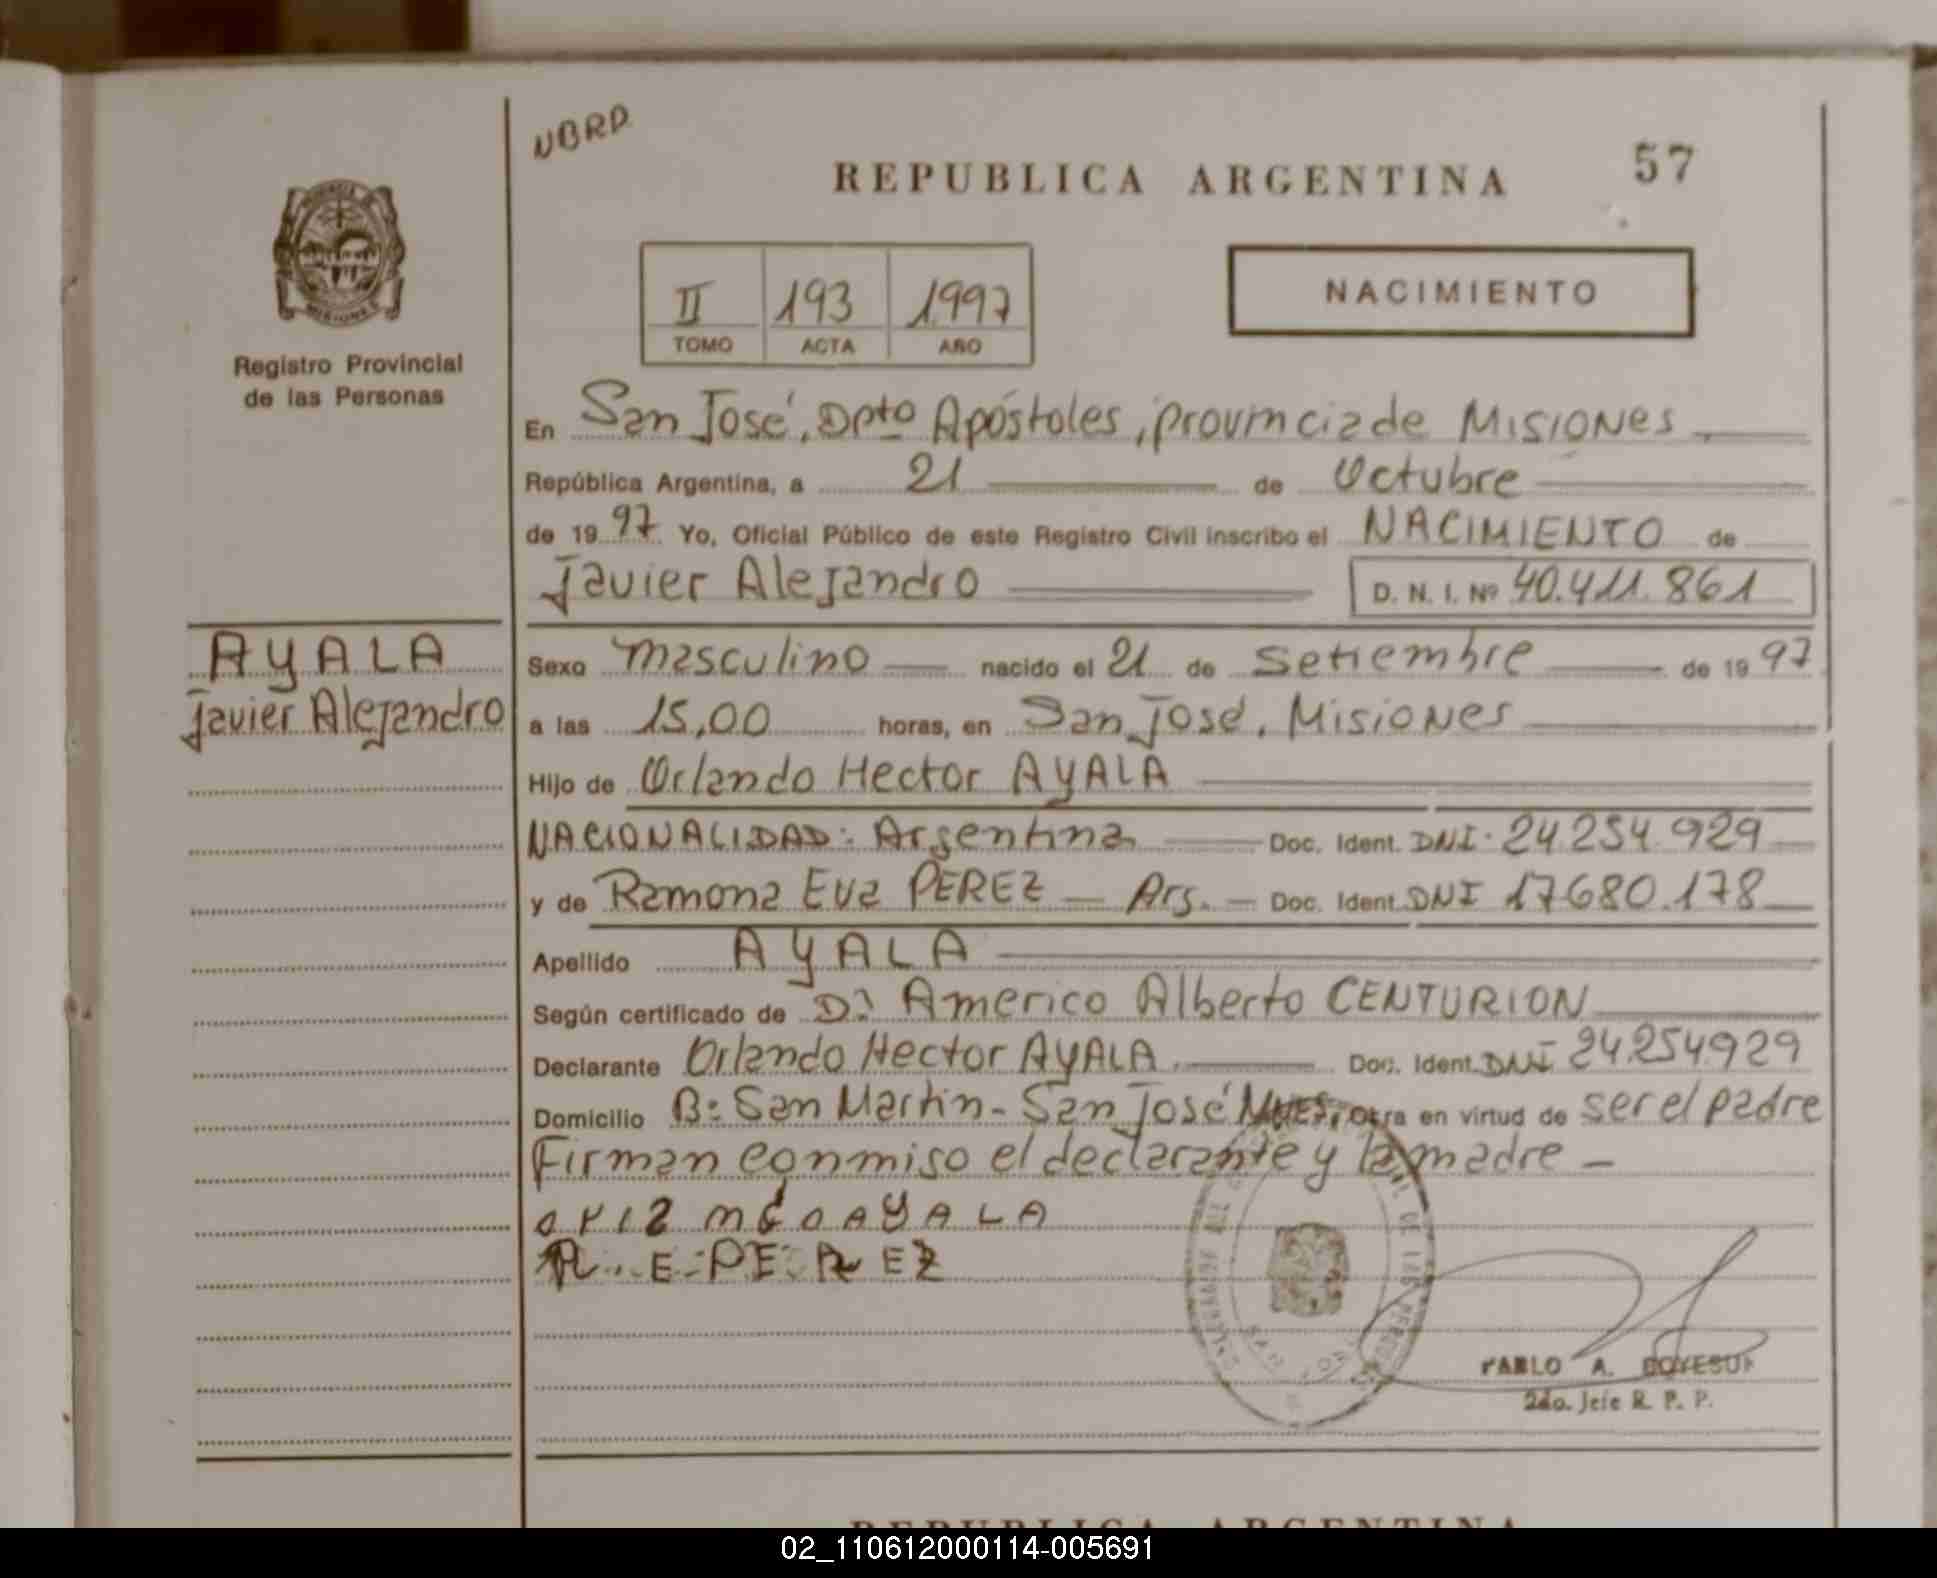 NBRD
REPUBLICA ARGENTINA 57
II 193 1997
TOMO ACTA AÑO
NACIMIENTO
MISIONES
Registro Provincial
de las Personas
En San José, Dpto Apóstoles, provincia de Misiones
República Argentina, a 21 de Octubre
de 1997 Yo, Oficial Público de este Registro Civil inscribo el NACIMIENTO de
Javier Alejandro D. N. I. Nº 40.411.861
AYALA
Javier Alejandro
Sexo masculino nacido el 21 de Setiembre de 1997
a las 15,00 horas, en San José, Misiones
Hijo de Orlando Hector AYALA
NACIONALIDAD: Argentina Doc. Ident. DNI. 24.254.929
y de Ramona Eva PEREZ — Arg. — Doc. Ident. DNI 17680.178
Apellido AYALA
Según certificado de Dr. Americo Alberto CENTURION
Declarante Orlando Hector AYALA Doc. Ident. DNI 24.254.929
Domicilio B: San Martin - San José Mnes, Obra en virtud de ser el padre
Firman conmiso el declarante y la madre —
AYALA
R. E. PEREZ
PABLO A.
2do. Jefe R. P. P.
REPUBLICA ARGENTINA
02_110612000114-005691